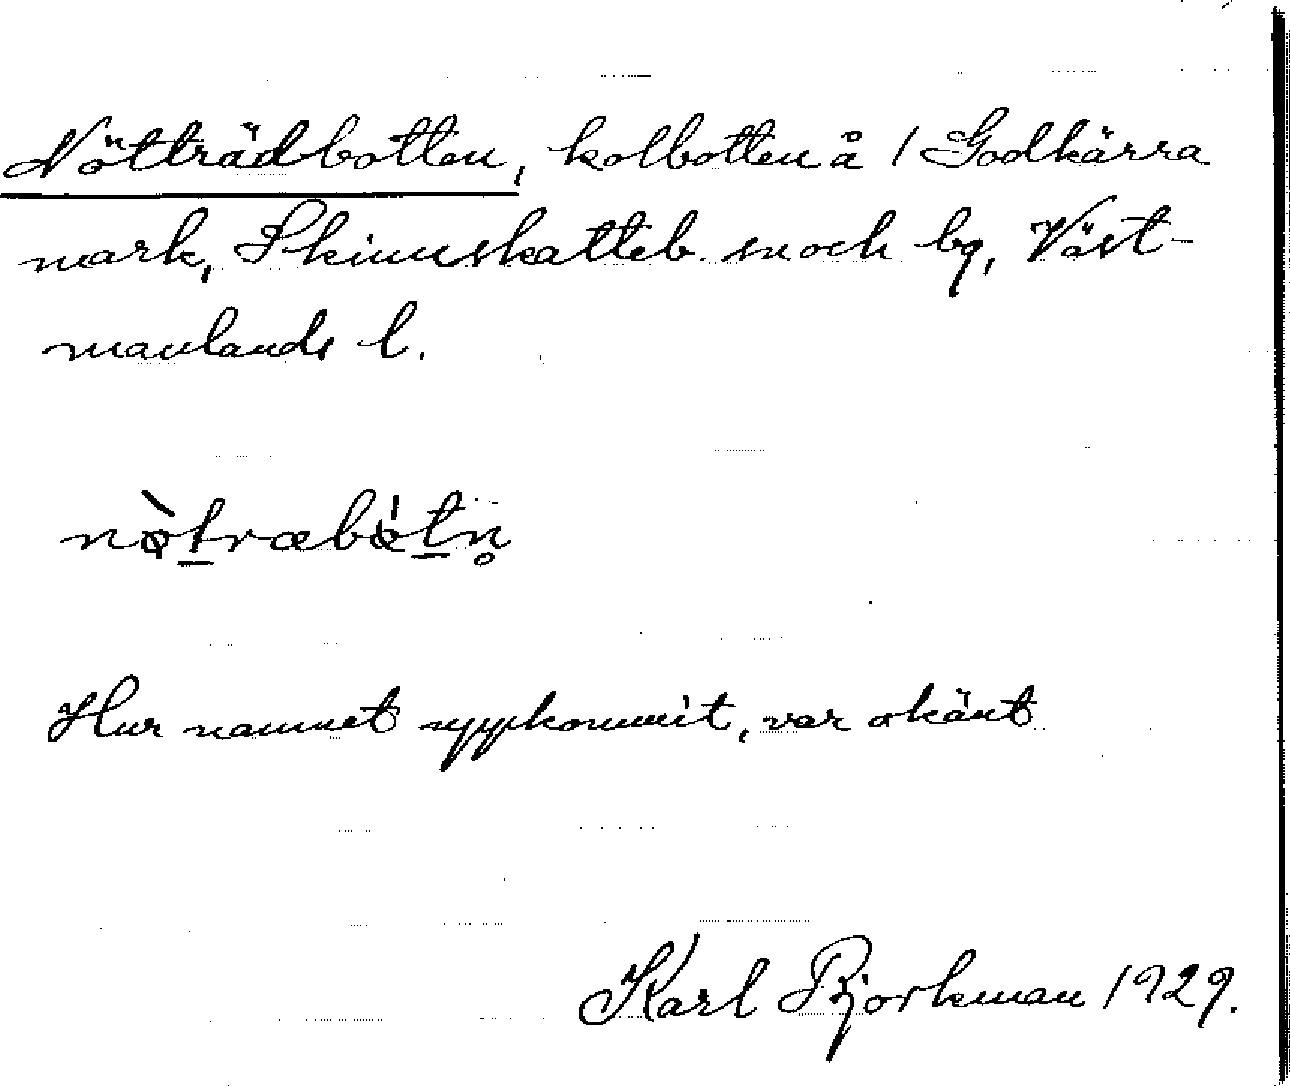 Nötträdbotten, kolbotten å / Godkärra
mark, Skinnskatteb. sn och by, Väst-
manlands l.
nø̀træbòtn̥
Hur namnet uppkommit, var okänt
Karl Björkman 1929.